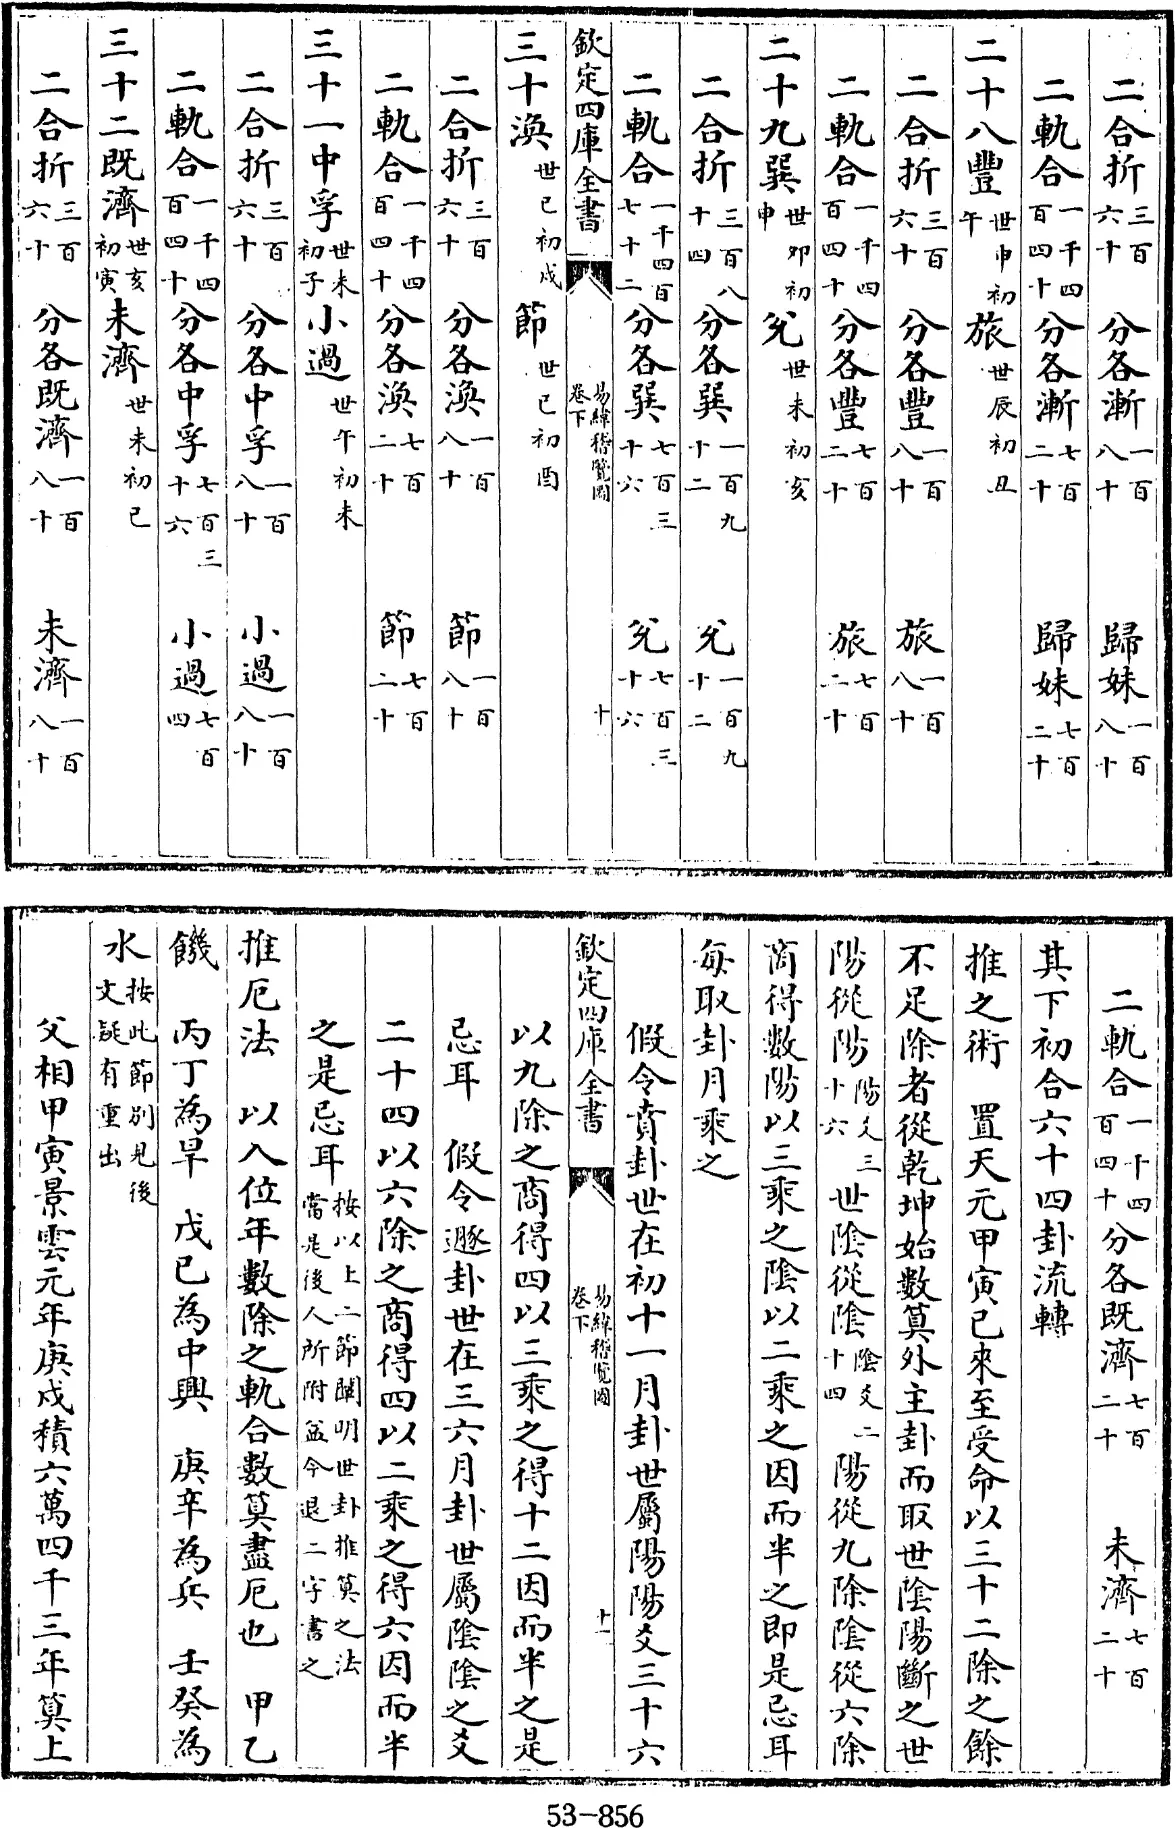 二合折三百六十 分各漸一百八十 歸妹一百八十
二軌合一千四百四十分各漸七百二十 歸妹七百二十
二十八豐世申初午 旅世辰初丑
二合折三百六十 分各豐一百八十 旅一百八十
二軌合一千四百四十分各豐七百二十 旅七百二十
二十九巽世卯初申 兊世未初亥
二合折三百八十四 分各巽一百九十二 兊一百九十二
二軌合一千四百七十二分各巽七百三十六 兊七百三十六
欽定四庫全書 易緯稽覽圖卷下 十
三十渙世巳初戌 節世巳初酉
二合折三百六十 分各渙一百八十 節一百八十
二軌合一千四百四十分各渙七百二十 節七百二十
三十一中孚世未初子小過世午初未
二合折三百六十 分各中孚一百八十 小過一百八十
二軌合一千四百四十分各中孚七百三十六 小過七百四
三十二既濟世亥初寅未濟世未初已
二合折三百六十 分各既濟一百八十 未濟一百八十
二軌合一千四百四十分各既濟七百二十 未濟七百二十
其下初合六十四卦流轉
推之術 置天元甲寅已來至受命以三十二除之餘
不足除者從乾坤始數算外主卦而取世陰陽斷之世
陽從陽陽爻三十六世陰從陰陰爻二十四陽從九除陰從六除
商得數陽以三乘之陰以二乘之因而半之即是忌耳
每取卦月乘之
假令賁卦世在初十一月卦世屬陽陽爻三十六
欽定四庫全書 易緯稽覽圖卷下 十一
以九除之商得四以三乘之得十二因而半之是
忌耳 假令遯卦世在三六月卦世屬陰陰之爻
二十四以六除之商得四以二乘之得六因而半
之是忌耳按以上二節闡明世卦推算之法當是後人所附益今退二字書之
推厄法 以入位年數除之軌合數算盡厄也 甲乙
饑 丙丁為旱 戊已為中興 庚辛為兵 壬癸為
水按此節別見後文疑有重出
父相甲寅景雲元年庚戌積六萬四千三年算上
53-856